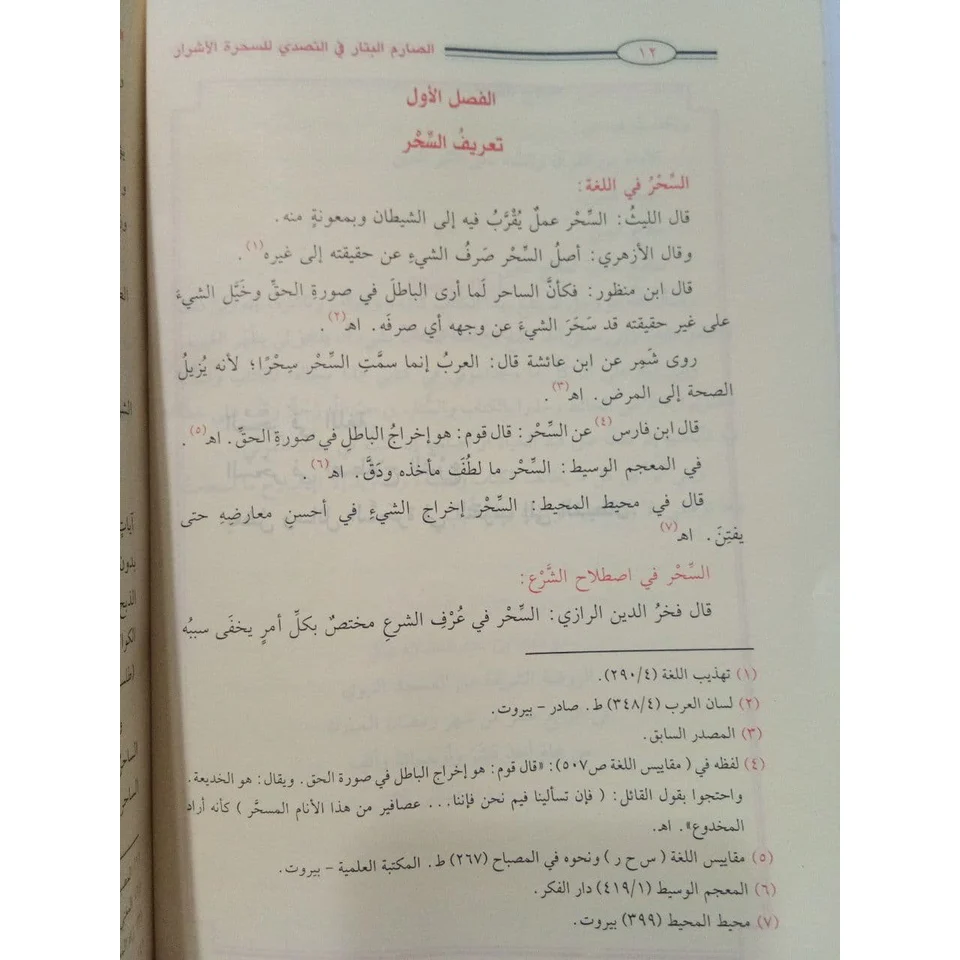 ١٢ الصارم البتار في التصدي للسحرة الأشرار
الفصل الأول
تعريفُ السِّحْر
السِّحْرُ في اللغة:
قال الليثُ: السِّحْر عملٌ يُقْرَّبُ فيه إلى الشيطان وبمعونةٍ منه.
وقال الأزهري: أصلُ السِّحْر صَرفُ الشيءِ عن حقيقته إلى غيره(١).
قال ابن منظور: فكأنَّ الساحر لَما أرى الباطلَ في صورةِ الحقِّ وخَيَّل الشيءَ
على غير حقيقته قد سَحَرَ الشيءَ عن وجهه أي صرفَه. اهـ(٢).
روى شَمِر عن ابن عائشة قال: العربُ إنما سمَّتِ السِّحْر سِحْرًا؛ لأنه يُزيلُ
الصحة إلى المرض. اهـ(٣).
قال ابن فارس(٤) عن السِّحْر: قال قوم: هو إخراجُ الباطلِ في صورةِ الحقِّ. اهـ(٥).
في المعجم الوسيط: السِّحْر ما لطُفَ مأخذه ودَقَّ. اهـ(٦).
قال في محيط المحيط: السِّحْر إخراج الشيءِ في أحسنِ معارضِهِ حتى
يفتِنَ. اهـ(٧)
السِّحْر في اصطلاح الشَّرْع:
قال فخرُ الدين الرازي: السِّحْر في عُرْفِ الشرعِ مختصٌ بكلِّ أمرٍ يخفَى سببُه
(١) تهذيب اللغة (٢٩٠/٤).
(٢) لسان العرب (٣٤٨/٤) ط. صادر - بيروت.
(٣) المصدر السابق.
(٤) لفظه في ( مقاييس اللغة ص٥٠٧): «قال قوم: هو إخراج الباطل في صورة الحق. ويقال: هو الخديعة.
واحتجوا بقول القائل: ( فإن تسألينا فيم نحن فإننا... عصافير من هذا الأنام المسحَّر ) كأنه أراد
المخدوع». اهـ.
(٥) مقاييس اللغة ( س ح ر ) ونحوه في المصباح (٢٦٧) ط. المكتبة العلمية - بيروت.
(٦) المعجم الوسيط (٤١٩/١) دار الفكر.
(٧) محيط المحيط (٣٩٩) بيروت.